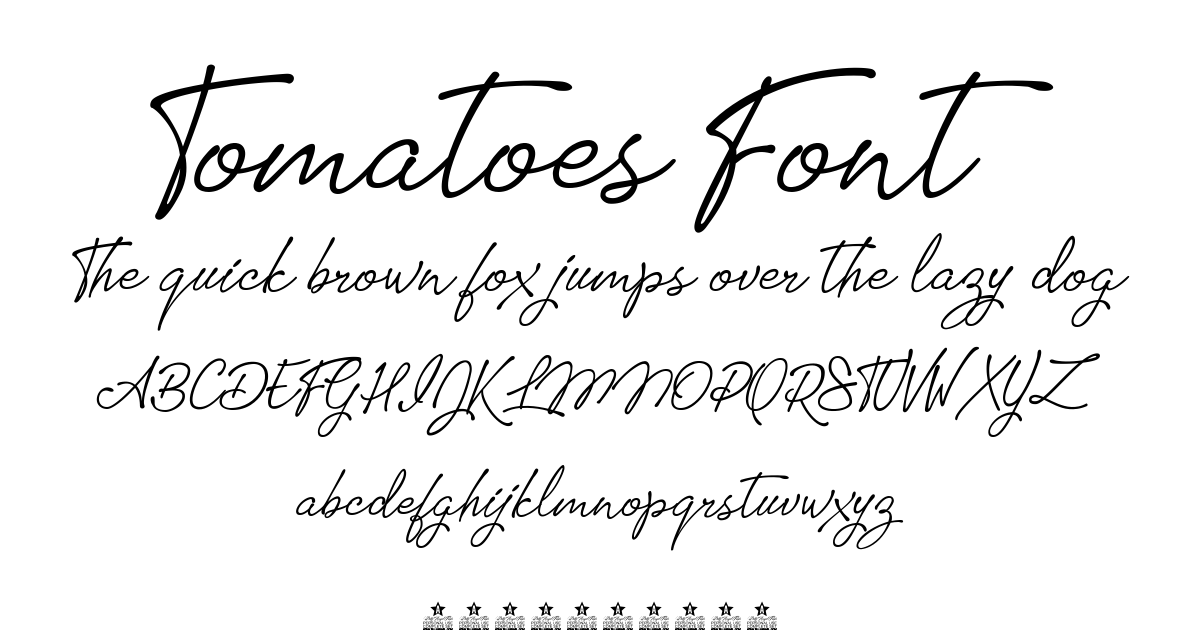 Tomatoes Font
The quick brown fox jumps over the lazy dog
ABCDEFGHIJKLMNOPQRSTUVWXYZ
abcdefghijklmnopqrstuvwxyz